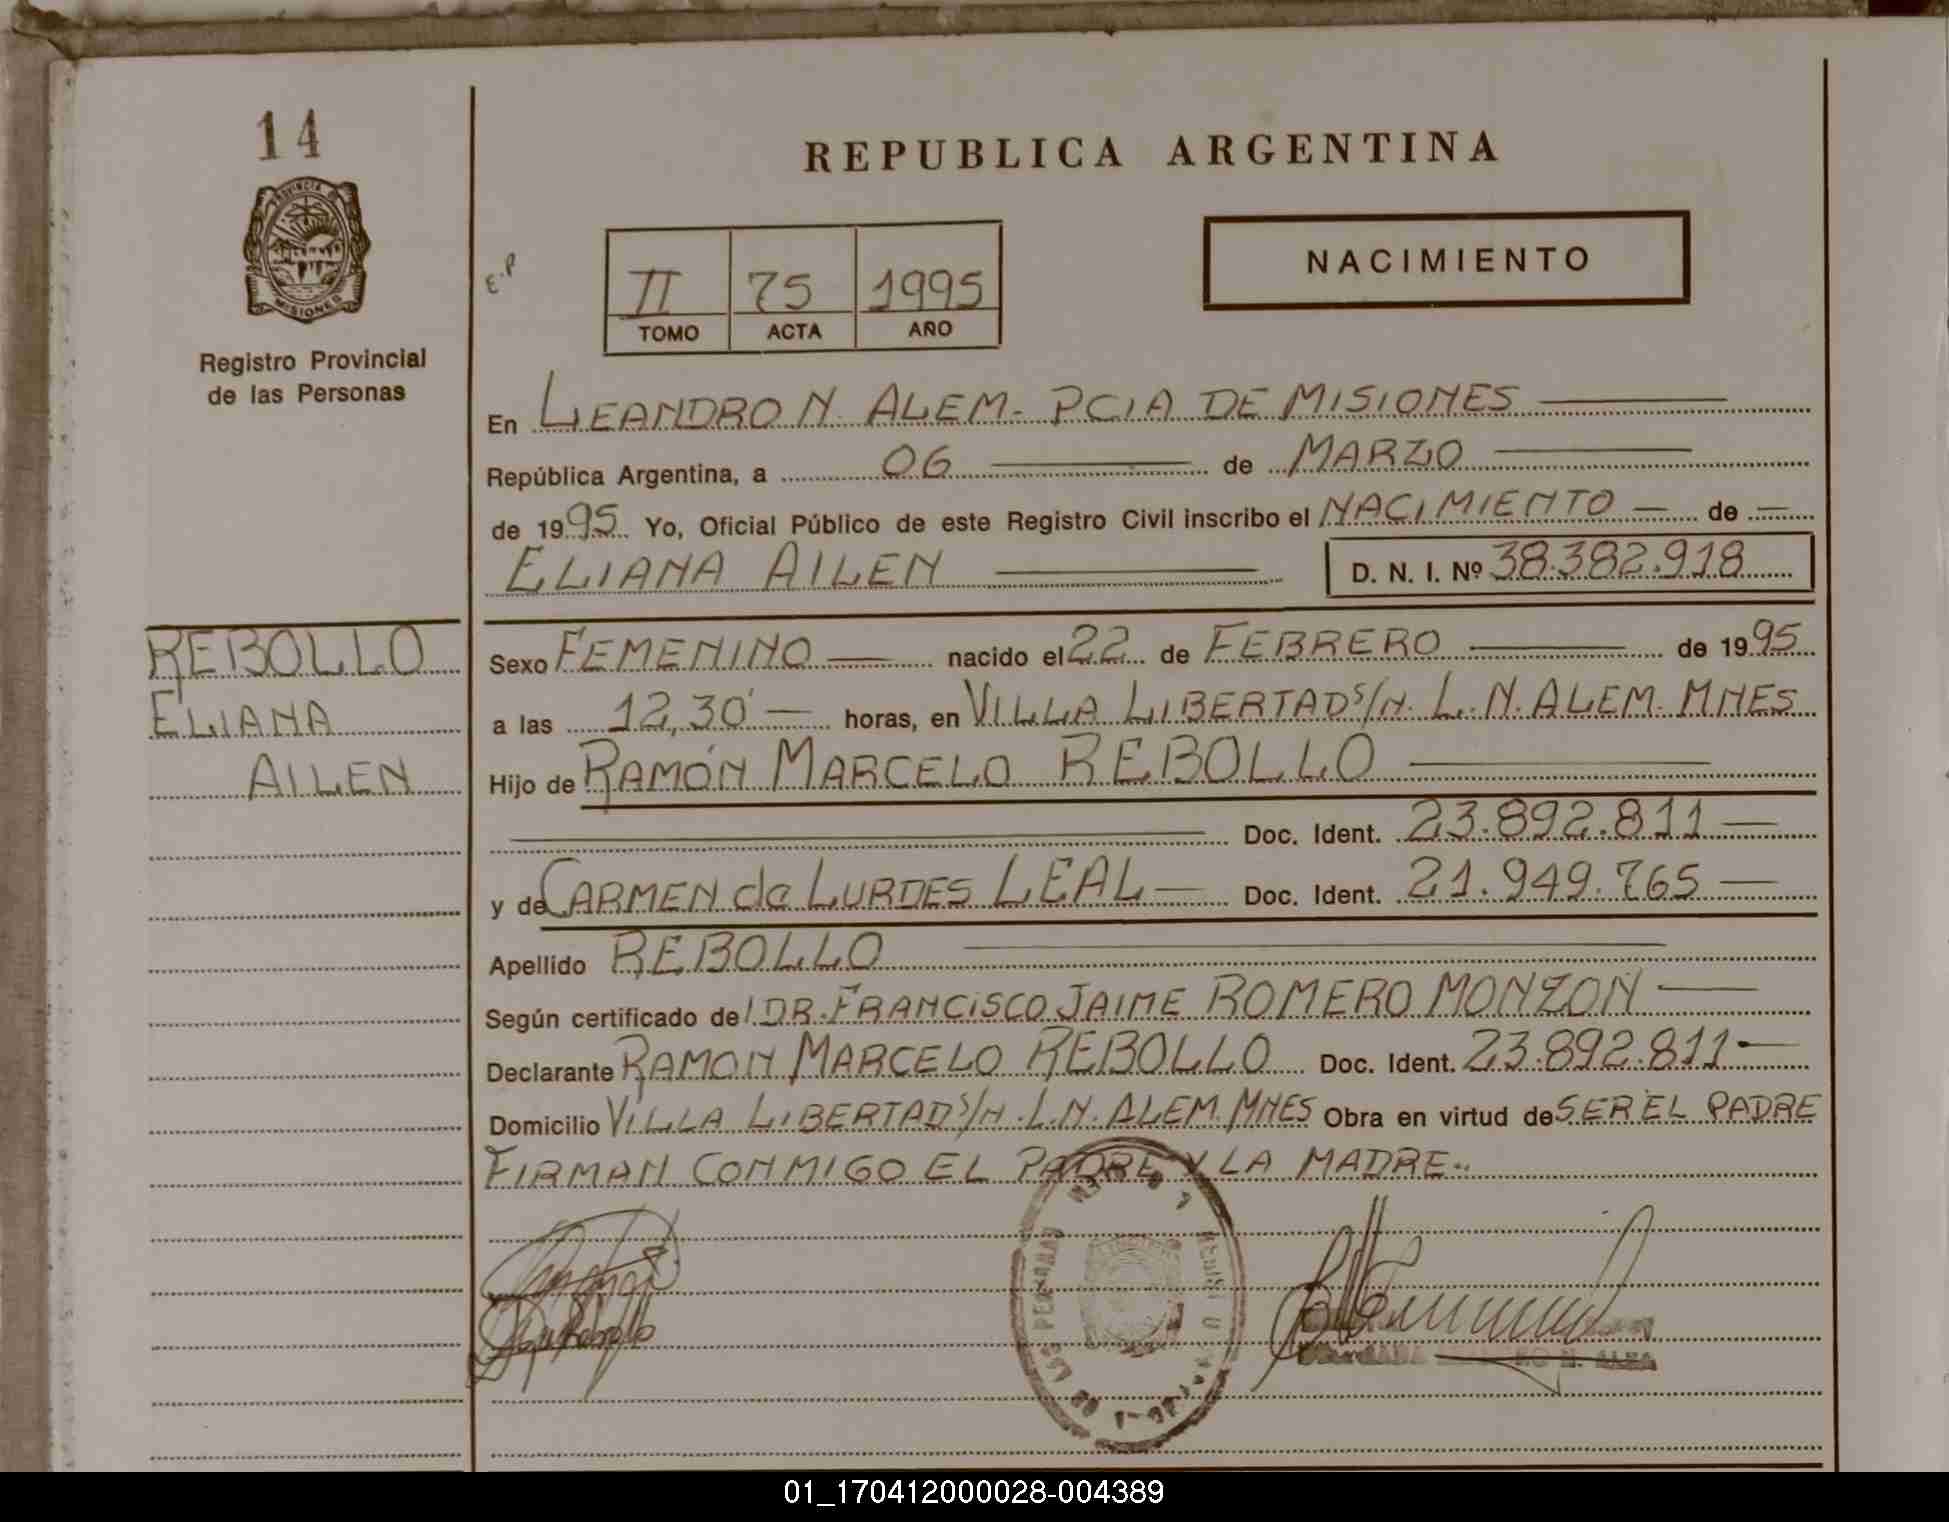 14
PROVINCIA DE
MISIONES
Registro Provincial
de las Personas
REPUBLICA ARGENTINA
E.P
II 75 1995
TOMO ACTA AÑO
NACIMIENTO
En LEANDRO N. ALEM - PCIA DE MISIONES
República Argentina, a 06 de MARZO
de 1995 Yo, Oficial Público de este Registro Civil inscribo el NACIMIENTO — de —
ELIANA AILEN D. N. I. Nº 38.382.918
REBOLLO
ELIANA
AILEN
Sexo FEMENINO — nacido el 22 de FEBRERO — de 1995
a las 12,30' — horas, en VILLA LIBERTAD S/N. L.N. ALEM. MNES
Hijo de RAMÓN MARCELO REBOLLO —
Doc. Ident. 23.892.811 —
y de CARMEN de LURDES LEAL — Doc. Ident. 21.949.765 —
Apellido REBOLLO —
Según certificado del DR. FRANCISCO JAIME ROMERO MONZON —
Declarante RAMON MARCELO REBOLLO Doc. Ident. 23.892.811 —
Domicilio VILLA LIBERTAD S/N. L.N. ALEM. MNES Obra en virtud de SER EL PADRE
FIRMAN CONMIGO EL PADRE Y LA MADRE..
DE LAS PERSONAS
01_170412000028-004389